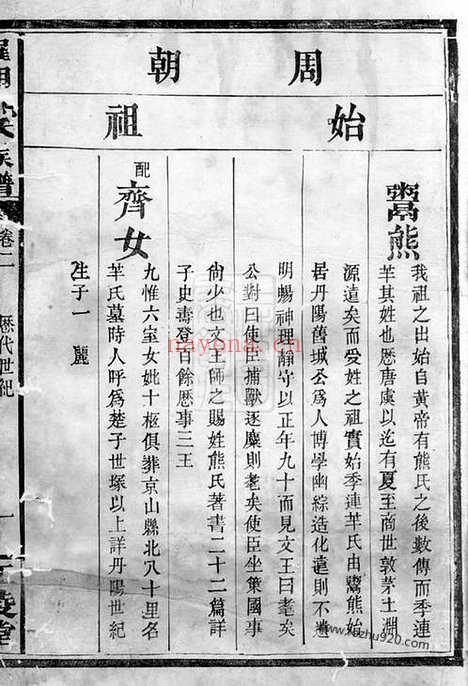 周朝
始祖
鬻熊
我祖之出始自黃帝有熊氏之後數傳而季連
羋其姓也歷唐虞以迄有夏至商世敦茅土淵
源遠矣而受姓之祖實始季連羋氏由鬻熊始
居丹陽舊城公爲人博學幽綜造化遠則不遺
明暢神理靜守以正年九十而見文王曰耄矣
公對曰使臣捕獸逐麋則耄矣使臣坐策國事
尙少也文王師之賜姓熊氏著書二十二篇詳
子史壽登百餘歷事三王
配
齊女
九惟六室女妣十柩俱葬京山縣北八十里名
羋氏墓時人呼爲楚子世塚以上詳丹陽世紀
生子一 麗
族譜
卷二
歷代世紀
一
nayona.cn
www.kozhu920.com